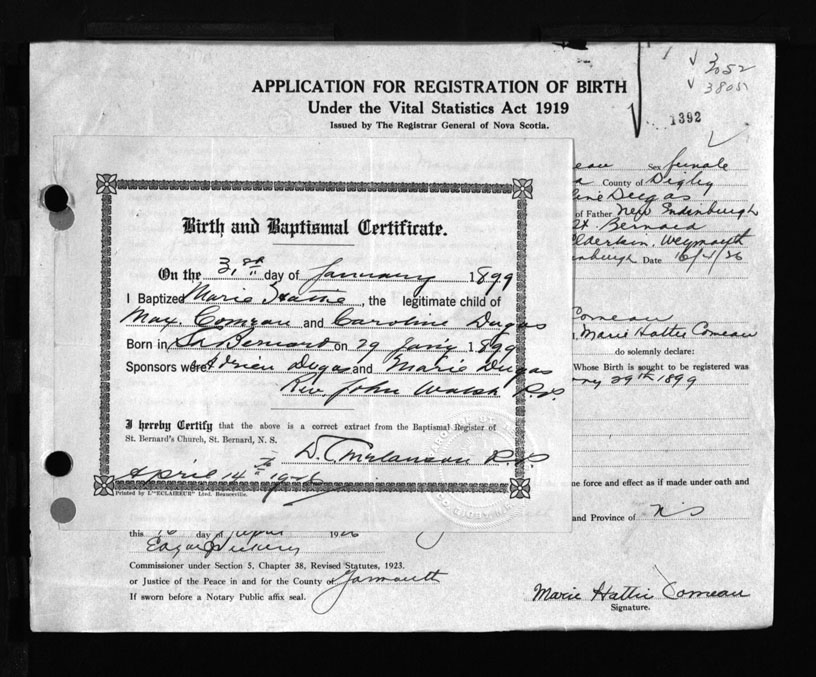 3052
3805
APPLICATION FOR REGISTRATION OF BIRTH
Under the Vital Statistics Act 1919
Issued by The Registrar General of Nova Scotia.
1392
eau Sex female
a County of Digby
Dugas
of Father New Endinburgh
St. Bernard
Weymouth
nburgh Date 16/4/26
Birth and Baptismal Certificate.
On the 31st day of January 1899
I Baptized Marie Hattie, the legitimate child of
Max. Comeau and Caroline Dugas
Born in St Bernard on 29 Jan'y 1899
Sponsors were Adrien Dugas and Marie Dugas
Rev John Walsh P.P.
I hereby Certify that the above is a correct extract from the Baptismal Register of
St. Bernard's Church, St. Bernard, N. S.
P.P.
April 14th 1926
Printed by L'"ECLAIREUR" Ltd. Beauceville.
Comeau
Marie Hattie Comeau
do solemnly declare:
Whose Birth is sought to be registered was
ary 29th 1899
me force and effect as if made under oath and
and Province of NS
this 16 day of April 1926
Edgar
Commissioner under Section 5, Chapter 38, Revised Statutes, 1923.
or Justice of the Peace in and for the County of Yarmouth
If sworn before a Notary Public affix seal.
Marie Hattie Comeau
Signature.